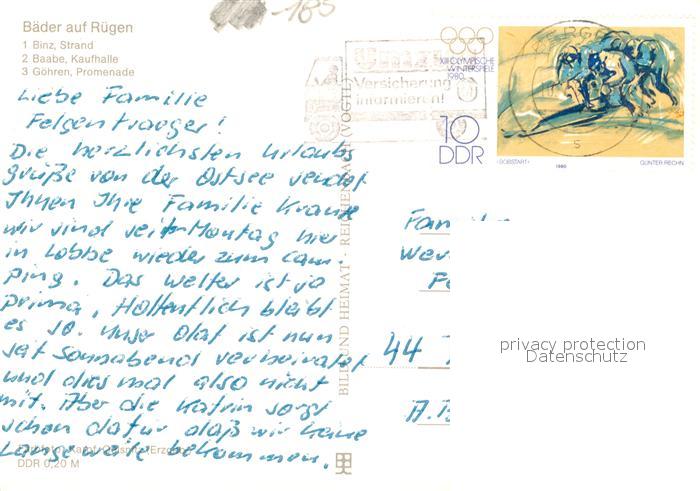 185
Bäder auf Rügen
1 Binz, Strand
2 Baabe, Kaufhalle
3 Göhren, Promenade
Liebe Familie
Felgentraeger!
Die herzlichsten Urlaubs
grüße von der Ostsee sendet
Ihnen Ihre Familie Krause
wir sind seit Montag hier
in Lobbe wieder zum Cam-
ping. Das Wetter ist ja
prima, Hoffentlich bleibt
es so. Unser Olaf ist nun
seit Sonnabend verheiratet
und dies mal also nicht
mit. Aber die Katrin sorgt
schon dafür daß wir keine
Langeweile bekommen.
DDR 0,20 M
BILD UND HEIMAT · REICHENBACH (VOGTL)
Versicherung
informieren!
BERGEN
XIII. OLYMPISCHE
WINTERSPIELE
1980
10
DDR
»BOBSTART«
1980
GÜNTER RECHN
Fam
Wer
Fe
44
privacy protection
Datenschutz